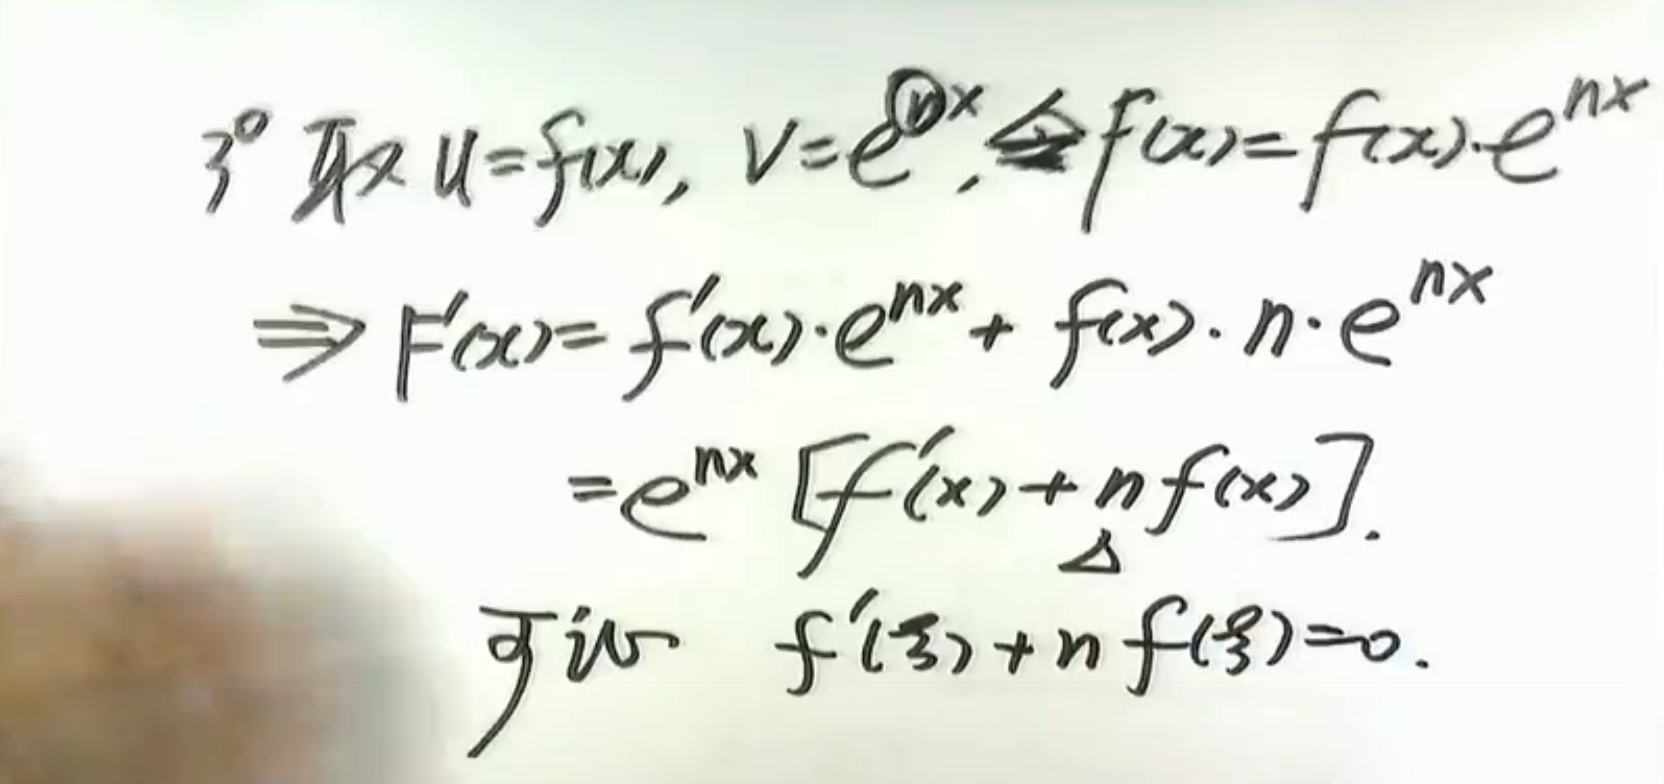 3° 取 u=f(x), v=e^{nx}, 令F(x)=f(x)·e^{nx}
⇒ F'(x)= f'(x)·e^{nx} + f(x)·n·e^{nx}
=e^{nx} [f'(x)+nf(x)].
△
可证 f'(ξ)+n f(ξ)=0.